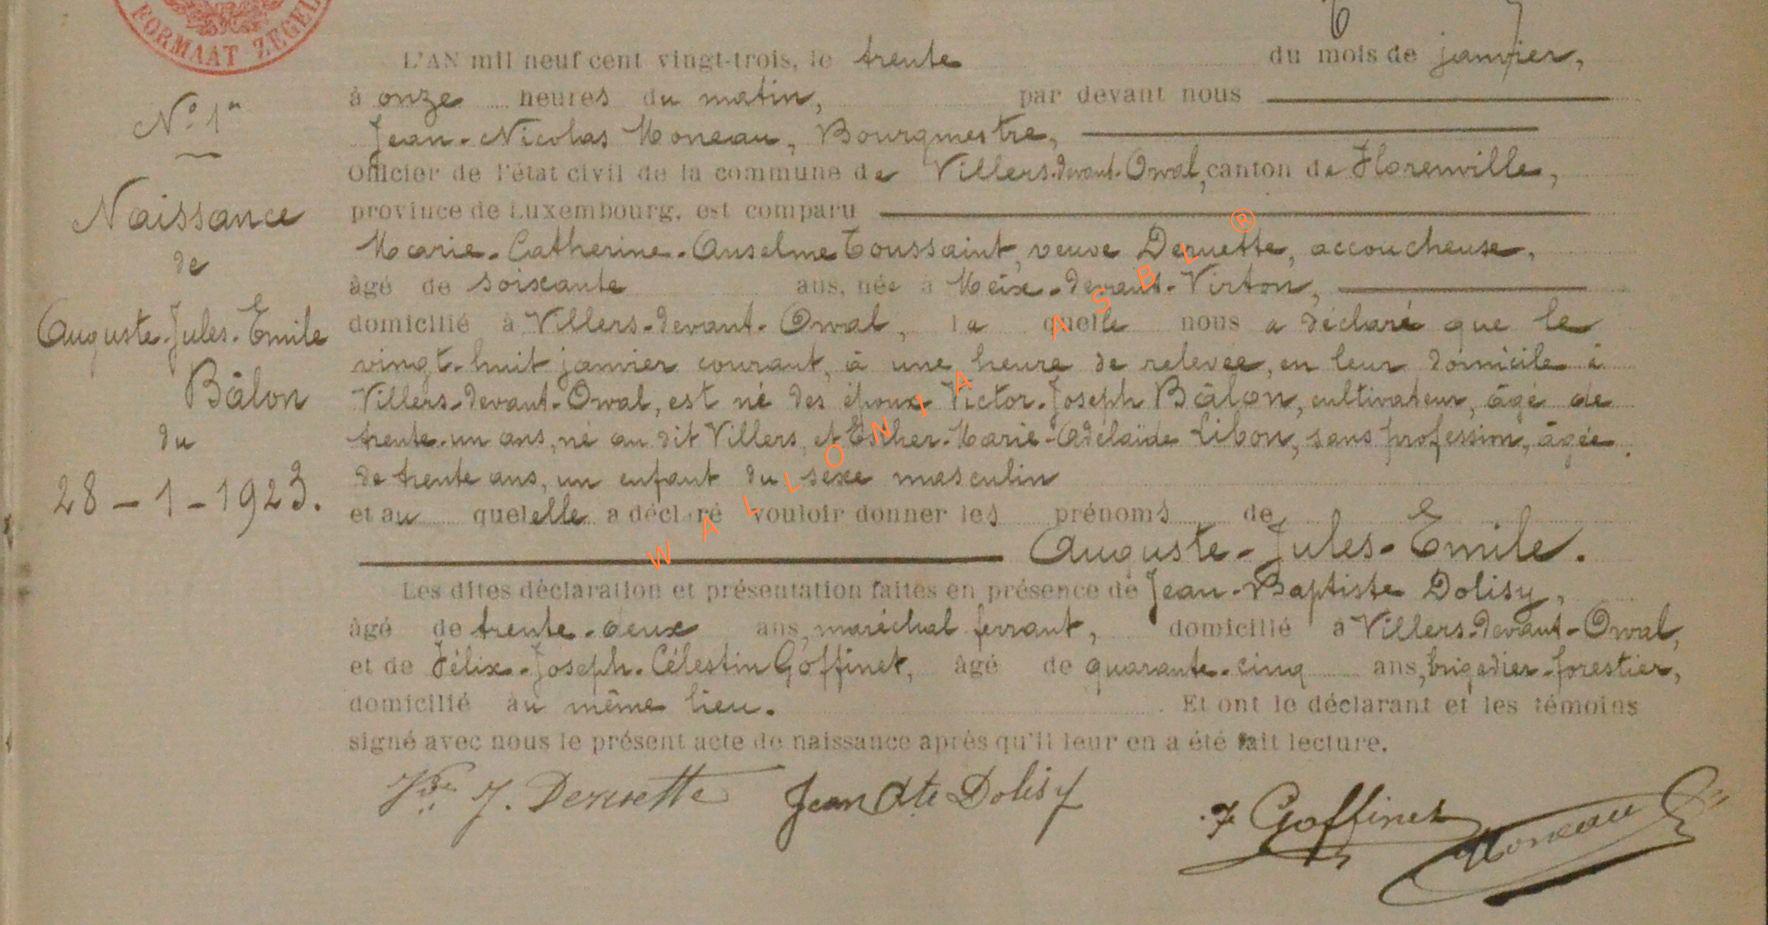 FORMAAT ZEGEL
N° 1er
Naissance
de
Auguste-Jules-Emile
Bâlon
du
28-1-1923.
L'AN mil neuf cent vingt-trois, le trente du mois de janvier,
à onze heures du matin, par devant nous
Jean-Nicolas Moneau, Bourgmestre,
Officier de l'état civil de la commune de Villers-devant-Orval, canton de Florenville,
province de Luxembourg, est comparu
Marie-Catherine-Anselme Toussaint, veuve Deruette, accoucheuse,
âgé de soixante ans, née à Meix-devant-Virton,
domicilié à Villers-devant-Orval, la quelle nous a déclaré que le
vingt-huit janvier courant, à une heure de relevée, en leur domicile à
Villers-devant-Orval, est né des époux Victor-Joseph Bâlon, cultivateur, âgé de
trente-un ans, né au dit Villers, et Esther-Marie-Adélaïde Libon, sans profession, âgée
de trente ans, un enfant du sexe masculin
et au quel elle a déclaré vouloir donner les prénoms de
Auguste-Jules-Emile.
Les dites déclaration et présentation faites en présence de Jean-Baptiste Dolisy,
âgé de trente-deux ans, maréchal ferrant, domicilié à Villers-devant-Orval,
et de Félix-Joseph-Célestin Goffinet, âgé de quarante-cinq ans, brigadier-forestier,
domicilié au même lieu. Et ont le déclarant et les témoins
signé avec nous le présent acte de naissance après qu'il leur en a été fait lecture.
Vve J. Deruette Jean Bte Dolisy F Goffinet Moneau
WALLONIA ASBL ®